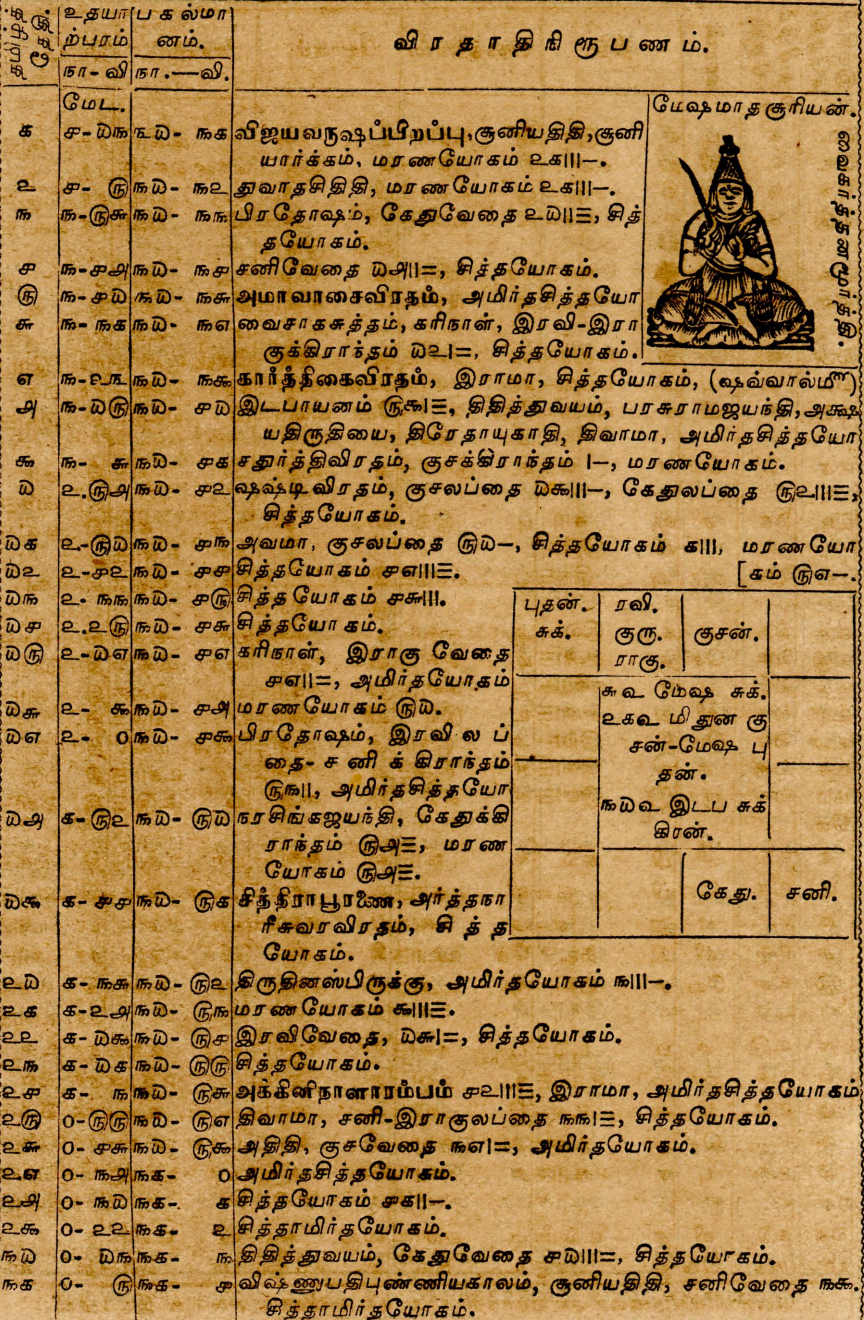 தமிழ்த் தேதி. உதயாற்பரம் பகல்மானம். விரதாதிநிரூபணம்.
நா-வி நா.—வி.
மேட. மேஷமாதசூரியன்.
வைகர்த்தனமூர்த்தி.
௧ ௪-௰௩ ௩௰-௩௧ விஜயவருஷப்பிறப்பு, சூனியதிதி, சூனி
யார்க்கம், மரணயோகம் ௨௧|||–.
௨ ௪-௫ ௩௰-௩௨ துவாதசிதிதி, மரணயோகம் ௨௧|||–.
௩ ௩-௫௬ ௩௰-௩௩ பிரதோஷம், கேதுவேதை ௨௰||≡, சித்
தயோகம்.
௪ ௩-௪௮ ௩௰-௩௪ சனிவேதை ௰௮||=, சித்தயோகம்.
௫ ௩-௪௰ ௩௰-௩௬ அமாவாசைவிரதம், அமிர்தசித்தயோ
௬ ௩-௩௧ ௩௰-௩௭ வைசாகசுத்தம், கரிநாள், இரவி-இரா
குக்கிராந்தம் ௰௨|=, சித்தயோகம்.
௭ ௩-௨௩ ௩௰-௩௯ கார்த்திகைவிரதம், இராமா, சித்தயோகம், (ஷவ்வால்மீ)
௮ ௩-௰௫ ௩௰-௪௰ இடபாயனம் ௫௯|≡, திதித்துவயம், பரசுராமஜயந்தி, அக்ஷ
யதிருதியை, திரேதாயுகாதி, திவாமா, அமிர்தசித்தயோ
௯ ௩-௬ ௩௰-௪௧ சதுர்த்திவிரதம், குசக்கிராந்தம் |–, மரணயோகம்.
௰ ௨.௫௮ ௩௰-௪௨ ஷஷ்டிவிரதம், குசலப்தை ௰௯|||–, கேதுலப்தை ௫௨|||≡,
சித்தயோகம்.
௰௧ ௨-௫௰ ௩௰-௪௩ அவமா, குசலப்தை ௫௰–, சித்தயோகம் ௧|||, மரணயோ
௰௨ ௨-௪௨ ௩௰-௪௪ சித்தயோகம் ௪௭|||≡. [கம் ௫௭–.
௰௩ ௨-௩௩ ௩௰-௪௫ சித்தயோகம் ௪௬|||.
௰௪ ௨.௨௫ ௩௰-௪௬ சித்தயோகம்.
௰௫ ௨-௰௭ ௩௰-௪௭ கரிநாள், இராகு வேதை
௪௭||=, அமிர்தயோகம்
௰௬ ௨-௯ ௩௰-௪௮ மரணயோகம் ௫௰.
௰௭ ௨-௦ ௩௰-௪௯ பிரதோஷம், இரவி லப்
தை-சனிக்கிராந்தம்
௫௩||, அமிர்தசித்தயோ
௰௮ ௧-௫௨ ௩௰-௫௰ நரசிங்கஜயந்தி, கேதுக்கி
ராந்தம் ௫௮≡, மரண
யோகம் ௫௮≡.
௰௯ ௧-௪௪ ௩௰-௫௧ சித்திராபூரணை, அர்த்தநா
ரீசுவரவிரதம், சித்த
யோகம்.
புதன். சுக். ரவி. குரு. ராகு. குசன்.
௬௳ மேஷ சுக்.
௨௧௳ மிதுன கு
சன்-மேஷ பு
தன்.
௩௰௳ இடப சுக்
கிரன்.
கேது. சனி.
௨௰ ௧-௩௬ ௩௰-௫௨ திருதினஸ்பிருக்கு, அமிர்தயோகம் ௩|||–.
௨௧ ௧-௨௮ ௩௰-௫௩ மரணயோகம் ௯|||≡.
௨௨ ௧-௰௯ ௩௰-௫௪ இரவிவேதை, ௰௬|=, சித்தயோகம்.
௨௩ ௧-௰௧ ௩௰-௫௫ சித்தயோகம்.
௨௪ ௧-௩ ௩௰-௫௬ அக்கினிநாளாரம்பம் ௪௨|||≡, இராமா, அமிர்தசித்தயோகம்
௨௫ ௦-௫௫ ௩௰-௫௭ திவாமா, சனி-இராகுலப்தை ௩௩|≡, சித்தயோகம்.
௨௬ ௦-௪௬ ௩௰-௫௯ அதிதி, குசவேதை ௩௭|=, அமிர்தயோகம்.
௨௭ ௦-௩௮ ௩௧-௦ அமிர்தசித்தயோகம்.
௨௮ ௦-௩௰ ௩௧-௧ சித்தயோகம் ௪௧||–.
௨௯ ௦-௨௨ ௩௧-௨ சித்தாமிர்தயோகம்.
௩௰ ௦-௰௩ ௩௧-௩ திதித்துவயம், கேதுவேதை ௪௰|||=, சித்தயோகம்.
௩௧ ௦-௫ ௩௧-௪ விஷ்ணுபதிபுண்ணியகாலம், சூனியதிதி, சனிவேதை ௩௯.
சித்தாமிர்தயோகம்.